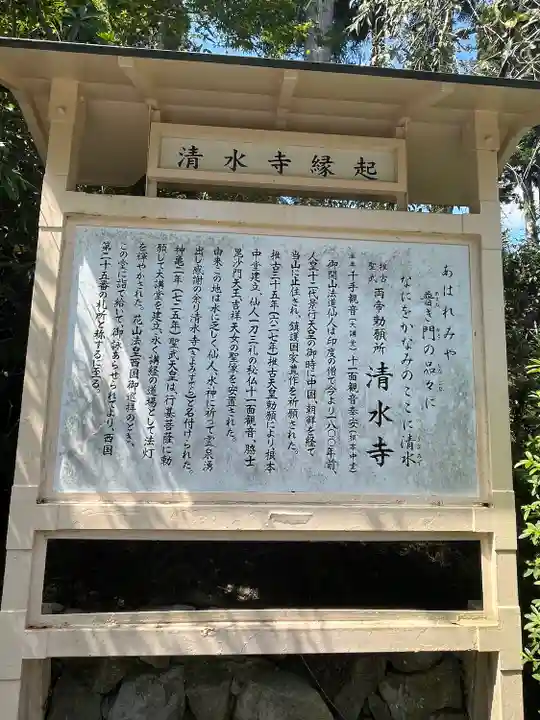 清水寺縁起
あはれみや
普き門の品々に
なにをかなみのここに清水
推古
聖武
両帝勅願所
清水寺
千手観音(大講堂)十一面観音奉安(根本中堂)
御開山法道仙人は印度の僧で今より一八〇〇年前、
人皇十二代景行天皇の御時に中国、朝鮮を経て
当山に止住され、鎮護国家豊作を祈願された。
推古三十五年(六二七年)推古天皇勅願により根本
中堂建立、仙人一刀三礼の秘仏十一面観音、脇士
毘沙門天王、吉祥天女の聖像を安置された。
由来この地は水に乏しく仙人、水神に祈って霊泉湧
出し感謝の余り清水寺(きよみずでら)と名付けられた。
神亀二年(七二五年)聖武天皇は行基菩薩に勅
願して大講堂を建立、永く講経の道場として法灯
を輝やかされた。花山法皇西国御巡拝のとき、
この堂に詣で給いて御詠あらせられてより、西国
第二十五番の札所と称するに至る。